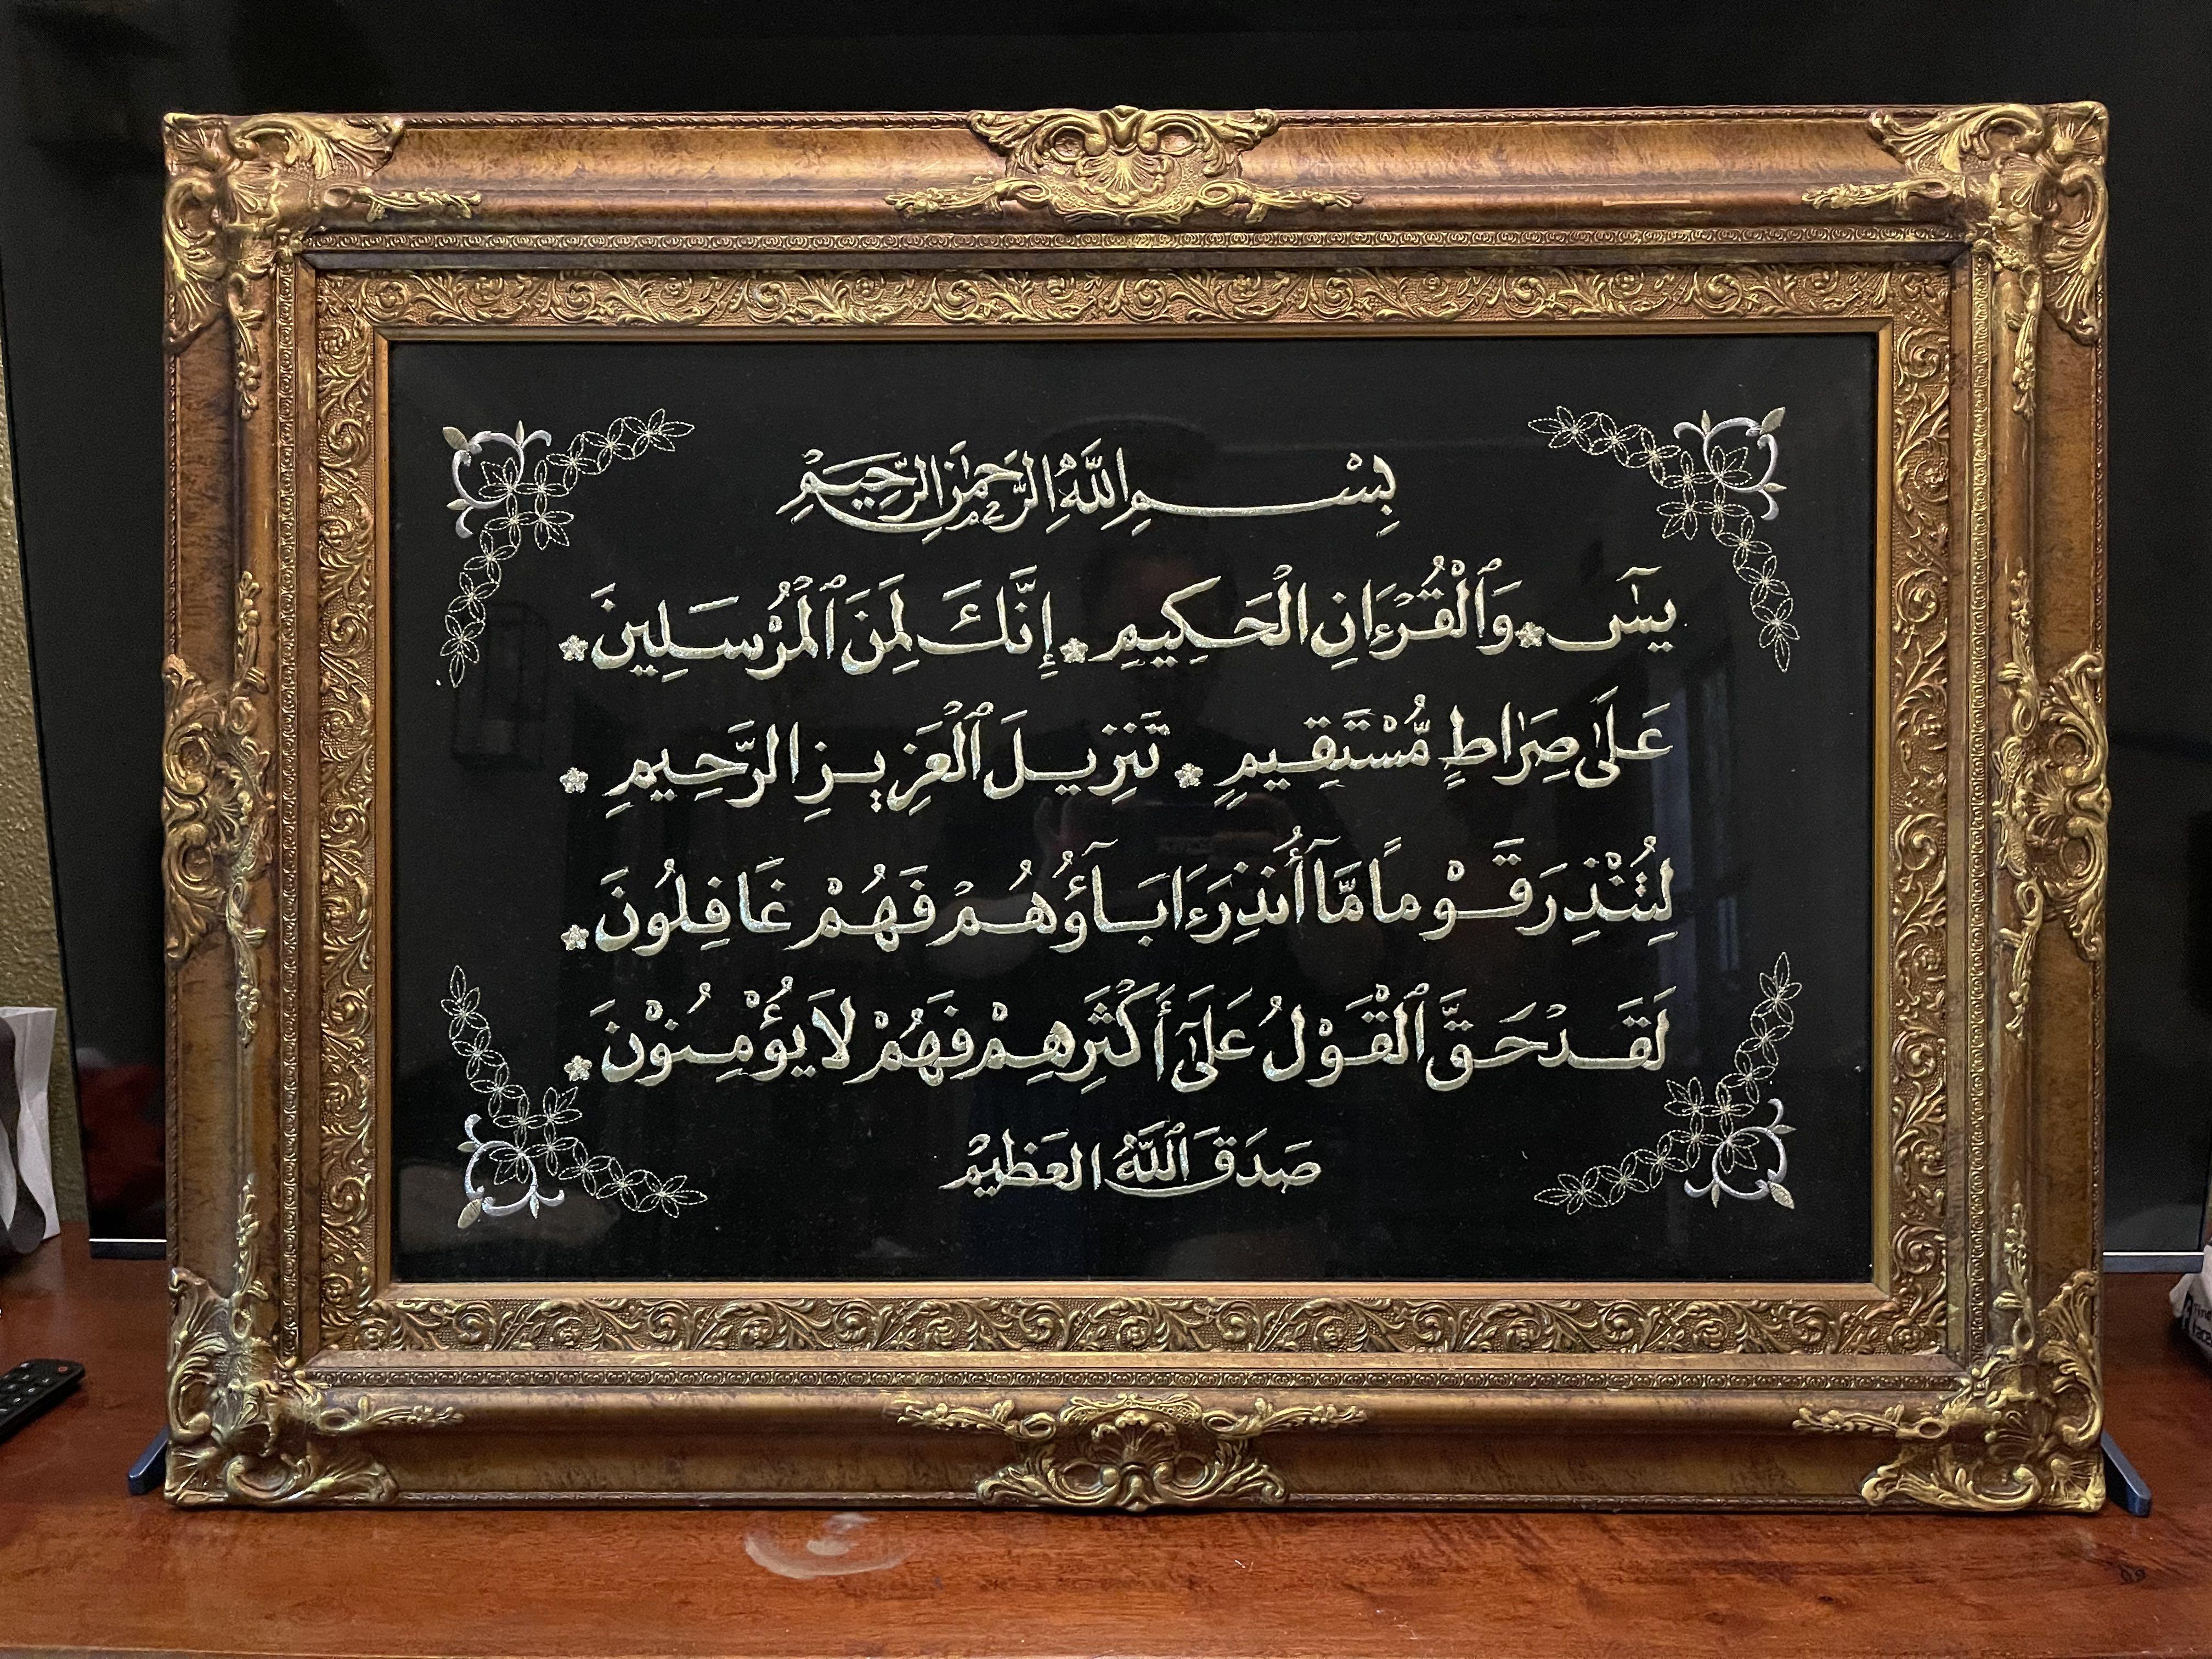 بِسْمِ اللَّهِ الرَّحْمَٰنِ الرَّحِيمِ
يسٓ * وَٱلْقُرْءَانِ الْحَكِيمِ * إِنَّكَ لَمِنَ ٱلْمُرْسَلِينَ *
عَلَىٰ صِرَٰاطٍ مُّسْتَقِيمٍ * تَنزِيلَ ٱلْعَزِيزِ الرَّحِيمِ *
لِتُنْذِرَ قَوْمًا مَّآ أُنذِرَ ءَابَآؤُهُمْ فَهُمْ غَافِلُونَ *
لَقَدْ حَقَّ ٱلْقَوْلُ عَلَىٰٓ أَكْثَرِهِمْ فَهُمْ لَا يُؤْمِنُوْنَ *
صَدَقَ ٱللَّهُ الْعَظِيمْ